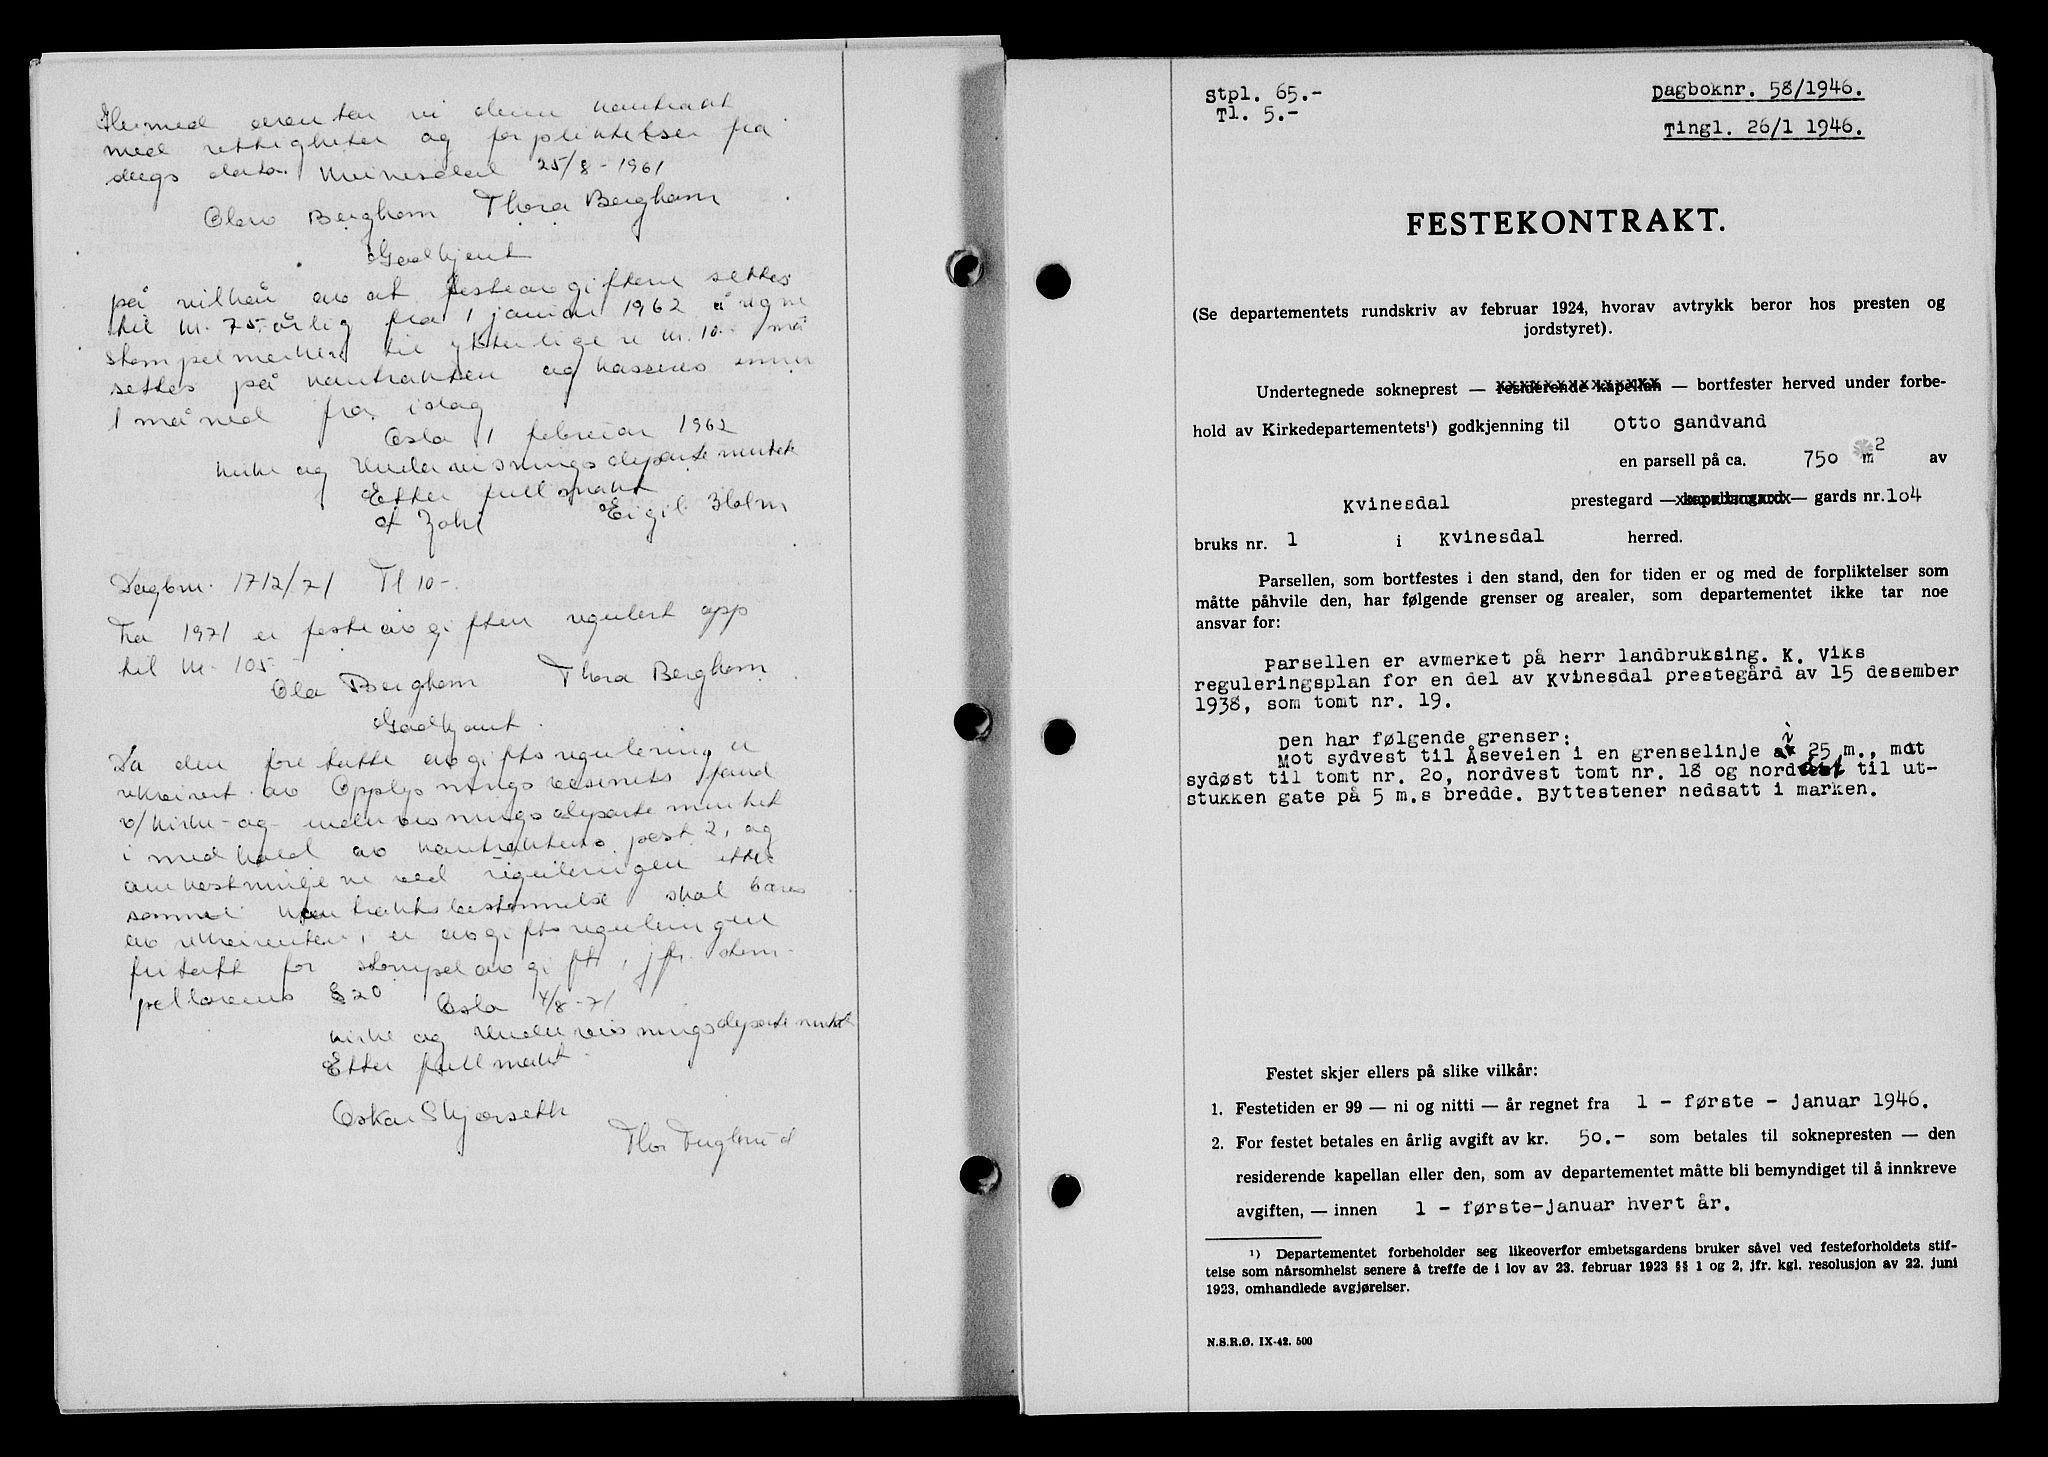 Hermed overtar vi denne kontrakt
med rettigheter og forpliktelser fra
dags dato. Kvinesdal 25/8-1961
Olav Berghom Thora Berghom
Godkjent
på vilkår av at festeavgiften settes
til kr. 75.- årlig fra 1 januar 1962 å regne
stempelmerker til ytterligere kr. 10.- må
settes på kontrakten og kasseres innen
1 måned fra idag
Oslo 1 februar 1962
Kirke og Undervisningsdepartementet
Etter fullmakt
Eigil Holm
Dagbnr. 1712/71 Tl 10-.
Fra 1971 er festeavgiften regulert opp
til kr. 105.-
Ola Berghom Thora Berghom
Godkjent.
Da den foretatte avgiftsregulering er
rekvirert av Opplysningsvesenets fond
v/Kirke- og undervisningsdepartementet
i medhold av kontraktens post 2, og
omkostningene ved reguleringen etter
samme kontraktsbestemmelse skal bæres
av rekvirenten, er avgiftsreguleringen
fritatt for stempelavgift, jfr. stem-
pellovens § 20
Oslo 4/8-71
Kirke og Undervisningsdepartementet
Etter fullmakt
Oskar Skjørseth
Thor Fuglerud
Stpl. 65.-
Tl. 5.-
Dagboknr. 58/1946.
Tingl. 26/1 1946.
FESTEKONTRAKT.
(Se departementets rundskriv av februar 1924, hvorav avtrykk beror hos presten og
jordstyret).
Undertegnede sokneprest — residerende kapellan — bortfester herved under forbe-
hold av Kirkedepartementets¹) godkjenning til Otto Sandvand
en parsell på ca. 750 m2 av
Kvinesdal prestegard — kapellangard — gards nr. 104
bruks nr. 1 i Kvinesdal herred.
Parsellen, som bortfestes i den stand, den for tiden er og med de forpliktelser som
måtte påhvile den, har følgende grenser og arealer, som departementet ikke tar noe
ansvar for:
Parsellen er avmerket på herr landbruksing. K. Viks
reguleringsplan for en del av Kvinesdal prestegård av 15 desember
1938, som tomt nr. 19.
Den har følgende grenser:
Mot sydvest til Åseveien i en grenselinje a 25 m., mot
sydøst til tomt nr. 20, nordvest tomt nr. 18 og nordøst til ut-
stukken gate på 5 m.s bredde. Byttestener nedsatt i marken.
Festet skjer ellers på slike vilkår:
1. Festetiden er 99 — ni og nitti — år regnet fra 1 - første - januar 1946.
2. For festet betales en årlig avgift av kr. 50.- som betales til soknepresten — den
residerende kapellan eller den, som av departementet måtte bli bemyndiget til å innkreve
avgiften, — innen 1 - første-januar hvert år.
¹) Departementet forbeholder seg likeoverfor embetsgardens bruker såvel ved festeforholdets stif-
telse som nårsomhelst senere å treffe de i lov av 23. februar 1923 §§ 1 og 2, jfr. kgl. resolusjon av 22. juni
1923, omhandlede avgjørelser.
N.S.R.Ø. IX-42. 500